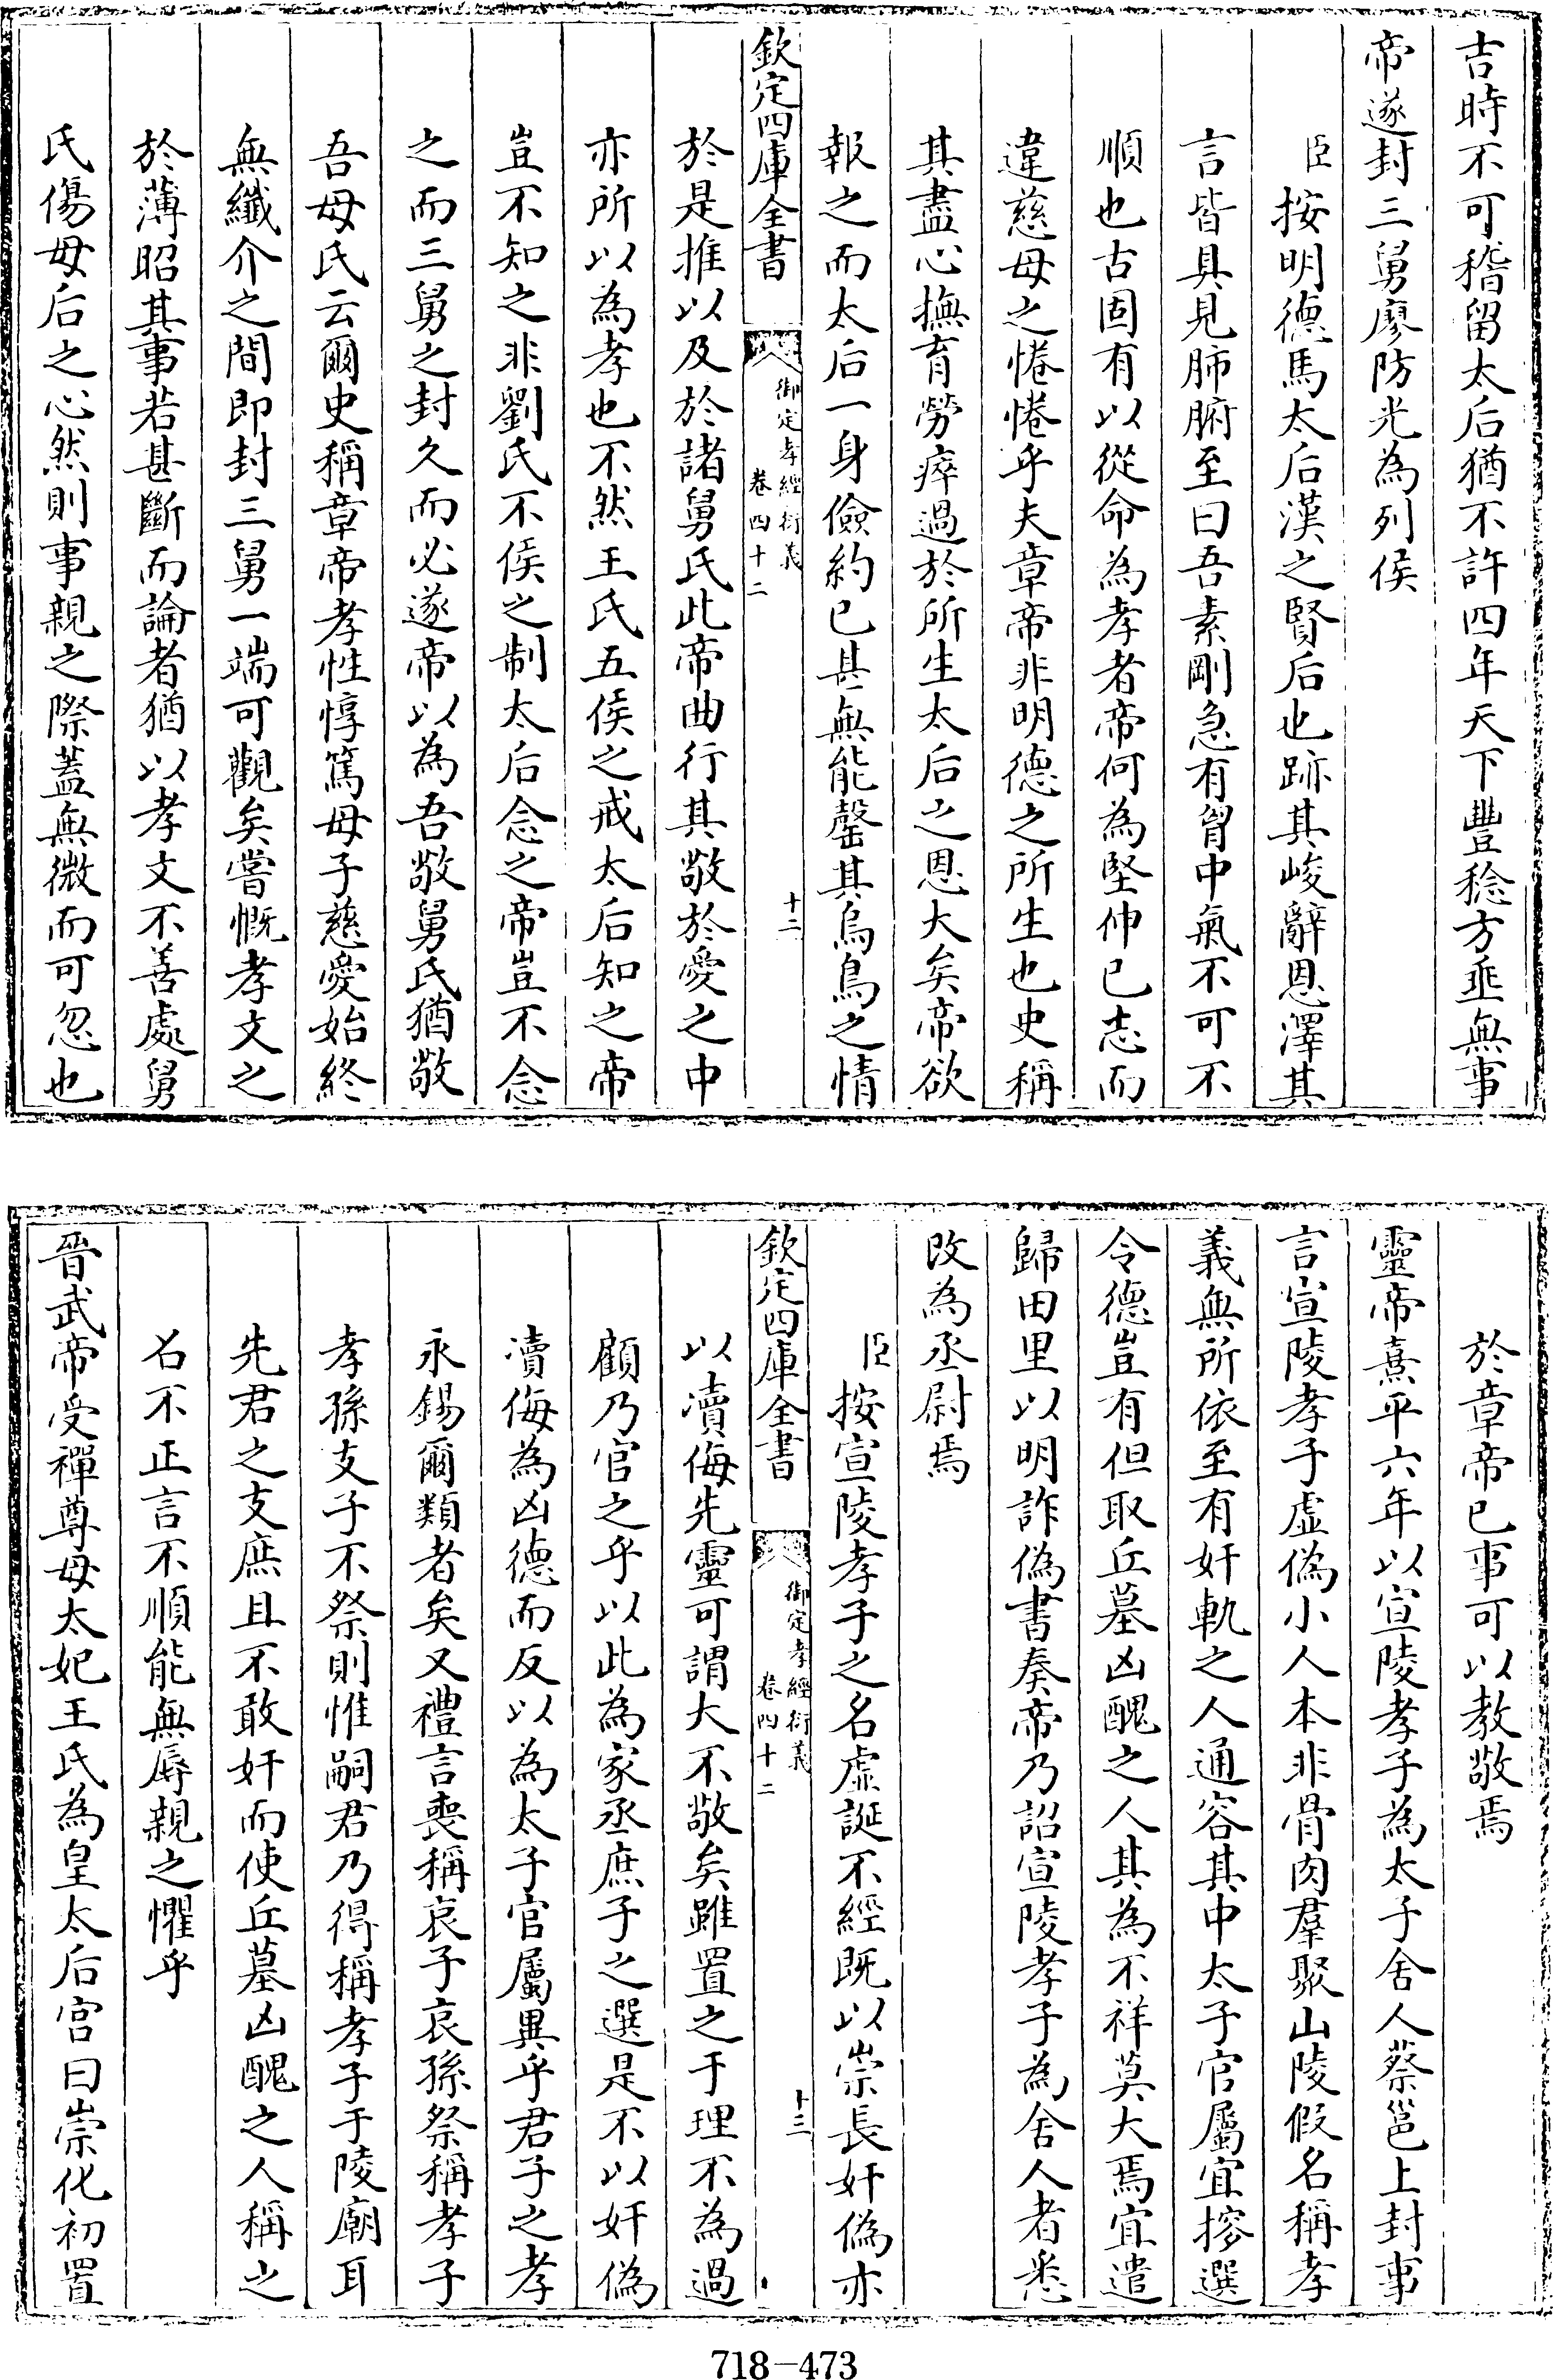 吉時不可稽留太后猶不許四年天下豐稔方垂無事
帝遂封三舅廖防光為列侯
臣按明德馬太后漢之賢后也跡其峻辭恩澤其
言皆具見肺腑至曰吾素剛急有胷中氣不可不
順也古固有以從命為孝者帝何為堅伸已志而
違慈母之惓惓乎夫章帝非明德之所生也史稱
其盡心撫育勞瘁過於所生太后之恩大矣帝欲
報之而太后一身儉約已甚無能罄其烏鳥之情
欽定四庫全書
御定孝經衍義
卷四十二
十二
於是推以及於諸舅氏此帝曲行其敬於愛之中
亦所以為孝也不然王氏五侯之戒太后知之帝
豈不知之非劉氏不侯之制太后念之帝豈不念
之而三舅之封久而必遂帝以為吾敬舅氏猶敬
吾母氏云爾史稱章帝孝性惇篤母子慈愛始終
無纖介之間即封三舅一端可觀矣嘗慨孝文之
於薄昭其事若甚斷而論者猶以孝文不善處舅
氏傷母后之心然則事親之際蓋無微而可忽也
於章帝已事可以教敬焉
靈帝熹平六年以宣陵孝子為太子舍人蔡邕上封事
言宣陵孝子虛偽小人本非骨肉羣聚山陵假名稱孝
義無所依至有奸軌之人通容其中太子官屬宜搜選
令德豈有但取丘墓凶醜之人其為不祥莫大焉宜遣
歸田里以明詐偽書奏帝乃詔宣陵孝子為舍人者悉
改為丞尉焉
臣按宣陵孝子之名虛誕不經既以崇長奸偽亦
欽定四庫全書
御定孝經衍義
卷四十二
十三
以瀆侮先靈可謂大不敬矣雖置之于理不為過
顧乃官之乎以此為家丞庶子之選是不以奸偽
瀆侮為凶德而反以為太子官屬異乎君子之孝
永錫爾類者矣又禮言喪稱哀子哀孫祭稱孝子
孝孫支子不祭則惟嗣君乃得稱孝子于陵廟耳
先君之支庶且不敢奸而使丘墓凶醜之人稱之
名不正言不順能無辱親之懼乎
晉武帝受禪尊母太妃王氏為皇太后宮曰崇化初置
718-473